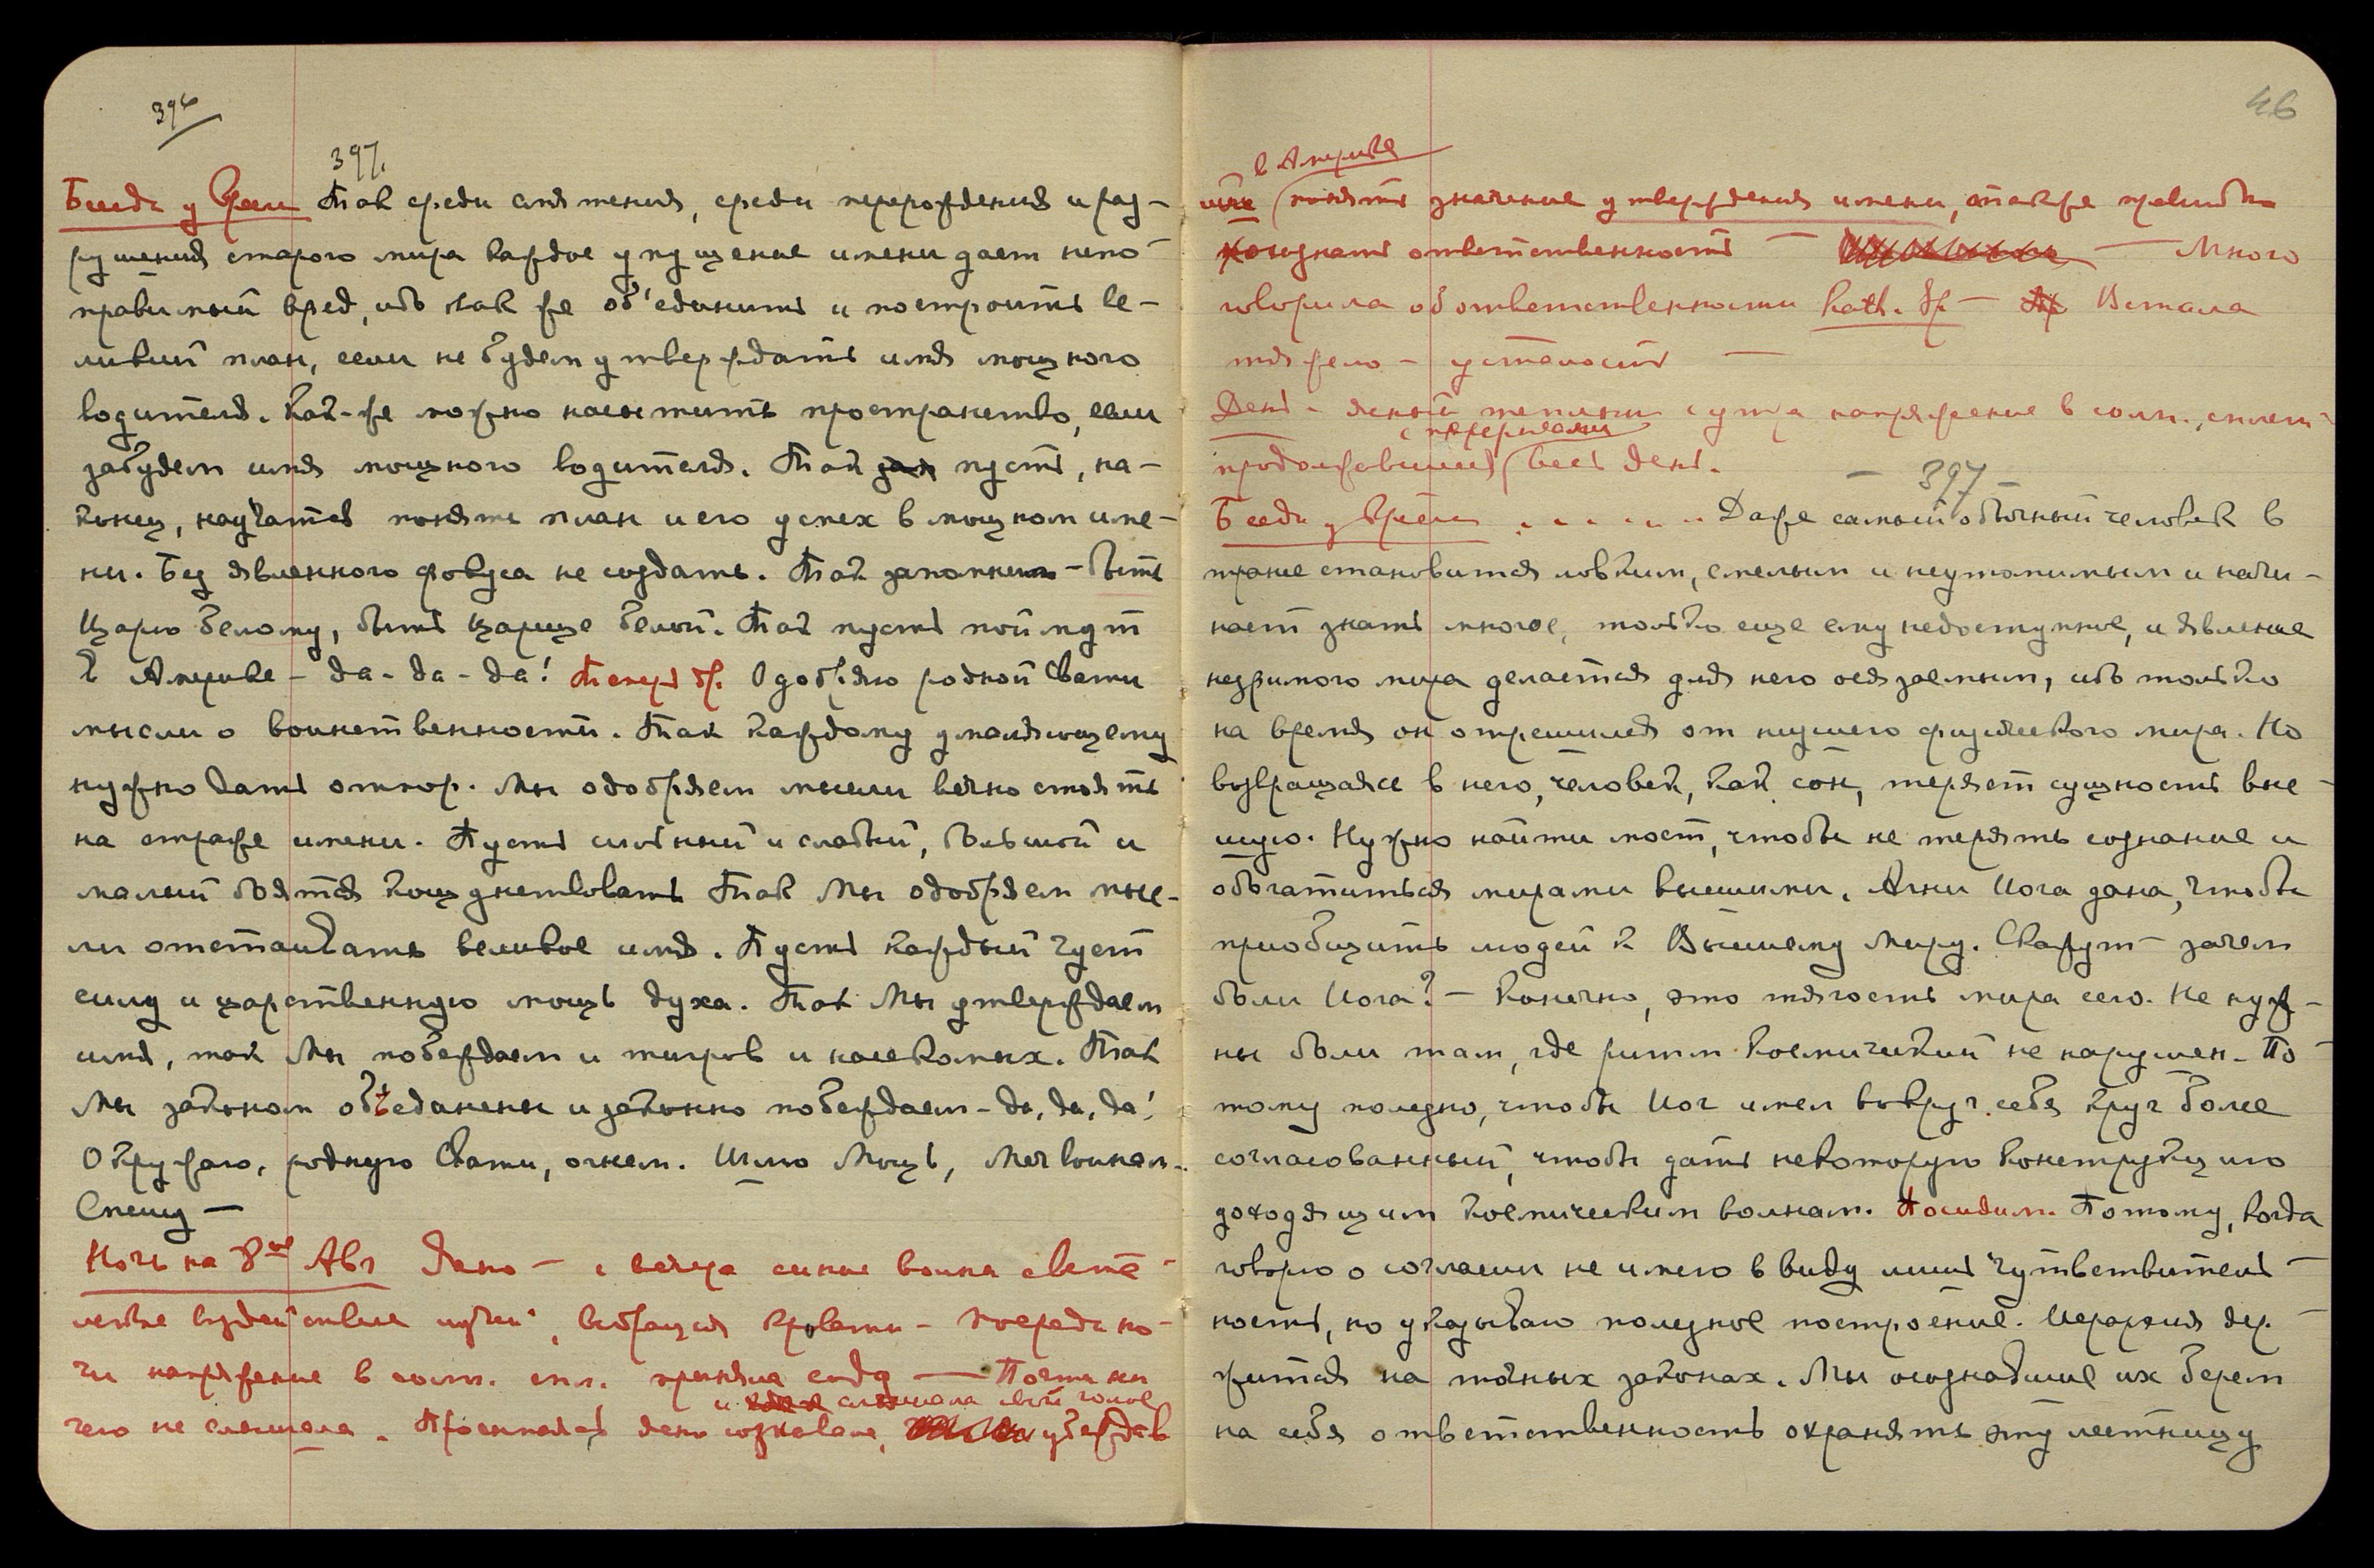 396
397.
Беседа у Экрана Так среди смятения, среди перерождения и раз-
рушения старого мира каждое упущение имени дает непо-
правимый вред, ибо как же об'единить и построить ве-
ликий план, если не будем утверждать имя мощного
водителя. Как-же можно насытить пространство, если
забудем имя мощного водителя. Так пусть, на-
конец, научатся понять план и его успех в мощном име-
ни. Без явленного фокуса не создать. Так запомнем - быть
Царю белому, быть царице белой. Так пусть поймут
в Америке - да - да - да! Теперь др. Одобряю родной Свати
мысли о воинственности. Так каждому умаляющему
нужно дать отпор. Мы одобряем мысли вечно стоять
на страже имени. Пусть сильный и слабый, большой и
малый боятся кощунствовать Так Мы одобряем мыс-
ли отстаивать великое имя. Пусть каждый чует
силу и царственную мощь духа. Так Мы утверждаем
имя, так Мы побеждаем и тигров и насекомых. Так
Мы законом объединены и законно побеждаем - да, да, да!
Окружаю, родную Свати, огнем. Шлю Мощь, Меч воинам.
Спешу —
Ночь на 8ое Авг Ясно — с вечера синие волны света -
легкие воздействие лучей, вибрация кровати - Посреди но-
чи напряжение в солн. спл. приняла соду — Почти ни
и слышала свой голос
чего не слышала. Проснулась ясно сознавая, убеждав
46
в Америке
шие понять значение утверждения имени, также правильно
осознать ответственность — — Много
говорила об ответственности Kath. др — Встала
тяжело - усталость —
День - ясный теплый с утра напряжение в солн., сплет
с перерывами
продолжавшиеся весь день.
— 397
Беседа у Экрана . . . . . . Даже самый обычный человек в
трансе становится ловким, смелым и неутомимым и начи-
нает знать многое, только еще ему недоступное, и явление
незримого мира делается для него осязаемым, ибо только
на время он отрешился от низшего физического мира. Но
возвращаясь в него, человек, как сон, теряет сущность выс-
шую. Нужно найти мост, чтобы не терять сознание и
обогатиться мирами высшими. Агни Иога дана, чтобы
приобщить людей к Высшему Миру. Скажут - зачем
боли Иога? - Конечно, это тягость мира сего. Не нуж-
ны боли там, где ритм космический не нарушен. По
тому полезно, чтобы Иог имел вокруг себя круг более
согласованный, чтобы дать некоторую конструкцию
доходящим космическим волнам. Посидим. Потому, когда
говорю о согласии не имею в виду лишь чувствитель-
ность, но указываю полезное построение. Иерархия дер-
жится на точных законах. Мы осознавшие их берем
на себя ответственность охранять эту лестницу